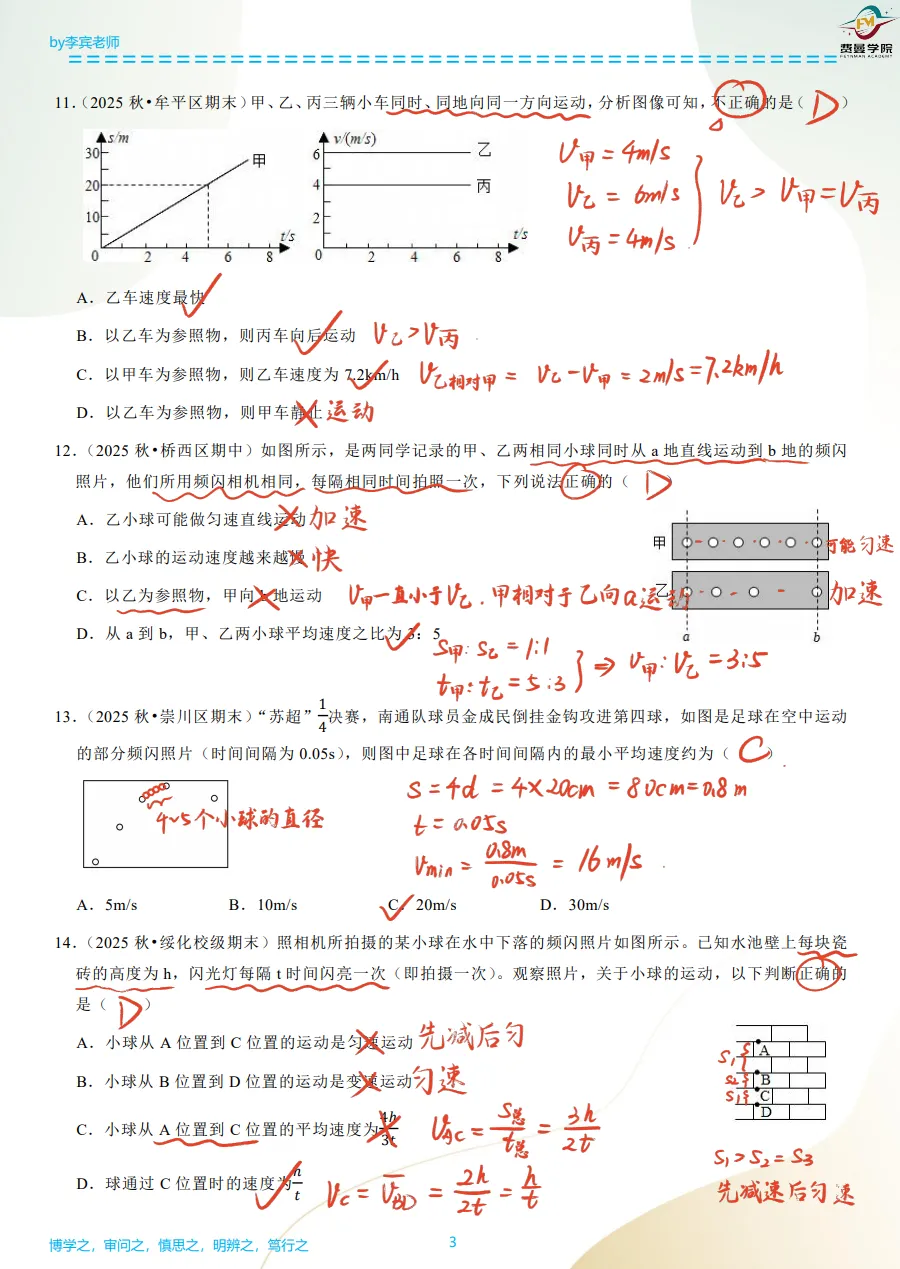 by李宾老师
费曼学院
FEYNMAN ACADEMY
11.（2025 秋•牟平区期末）甲、乙、丙三辆小车同时、同地向同一方向运动，分析图像可知，不正确的是（ D ）
s/m
30
20
10
0
2
4
6
8
t/s
甲
v/(m/s)
6
4
2
0
2
4
6
8
t/s
乙
丙
v甲＝4m/s
v乙＝6m/s
v丙＝4m/s
v乙＞v甲＝v丙
A．乙车速度最快
B．以乙车为参照物，则丙车向后运动 v乙＞v丙
C．以甲车为参照物，则乙车速度为 7.2km/h v乙相对甲＝ v乙－v甲＝2m/s＝7.2km/h
D．以乙车为参照物，则甲车静止 运动
12.（2025 秋•桥西区期中）如图所示，是两同学记录的甲、乙两相同小球同时从 a 地直线运动到 b 地的频闪
照片，他们所用频闪相机相同，每隔相同时间拍照一次，下列说法正确的（ D
A．乙小球可能做匀速直线运动 加速
B．乙小球的运动速度越来越慢 快
C．以乙为参照物，甲向 b 地运动 v甲一直小于v乙．甲相对于乙向a运动
D．从 a 到 b，甲、乙两小球平均速度之比为 3：5
甲
可能匀速
乙
加速
a
b
s甲：s乙＝1:1
t甲：t乙＝5:3
⇒ v甲：v乙＝3:5
13.（2025 秋•崇川区期末）“苏超”1/4决赛，南通队球员金成民倒挂金钩攻进第四球，如图是足球在空中运动
的部分频闪照片（时间间隔为 0.05s），则图中足球在各时间间隔内的最小平均速度约为（ C ）
4~5个小球的直径
s＝4d＝4×20cm＝80cm＝0.8m
t＝0.05s
vmin＝0.8m/0.05s＝16m/s
A．5m/s B．10m/s C．20m/s D．30m/s
14.（2025 秋•绥化校级期末）照相机所拍摄的某小球在水中下落的频闪照片如图所示。已知水池壁上每块瓷
砖的高度为 h，闪光灯每隔 t 时间闪亮一次（即拍摄一次）。观察照片，关于小球的运动，以下判断正确的
是（ D ）
A．小球从 A 位置到 C 位置的运动是匀速运动 先减后匀
B．小球从 B 位置到 D 位置的运动是变速运动 匀速
C．小球从 A 位置到 C 位置的平均速度为4h/3t vAC＝s总/t总＝3h/2t
D．球通过 C 位置时的速度为h/t vC＝v̅BD＝2h/2t＝h/t
A
B
C
D
s1
s2
s1
s1＞s2＝s3
先减速后匀速
博学之，审问之，慎思之，明辨之，笃行之
3